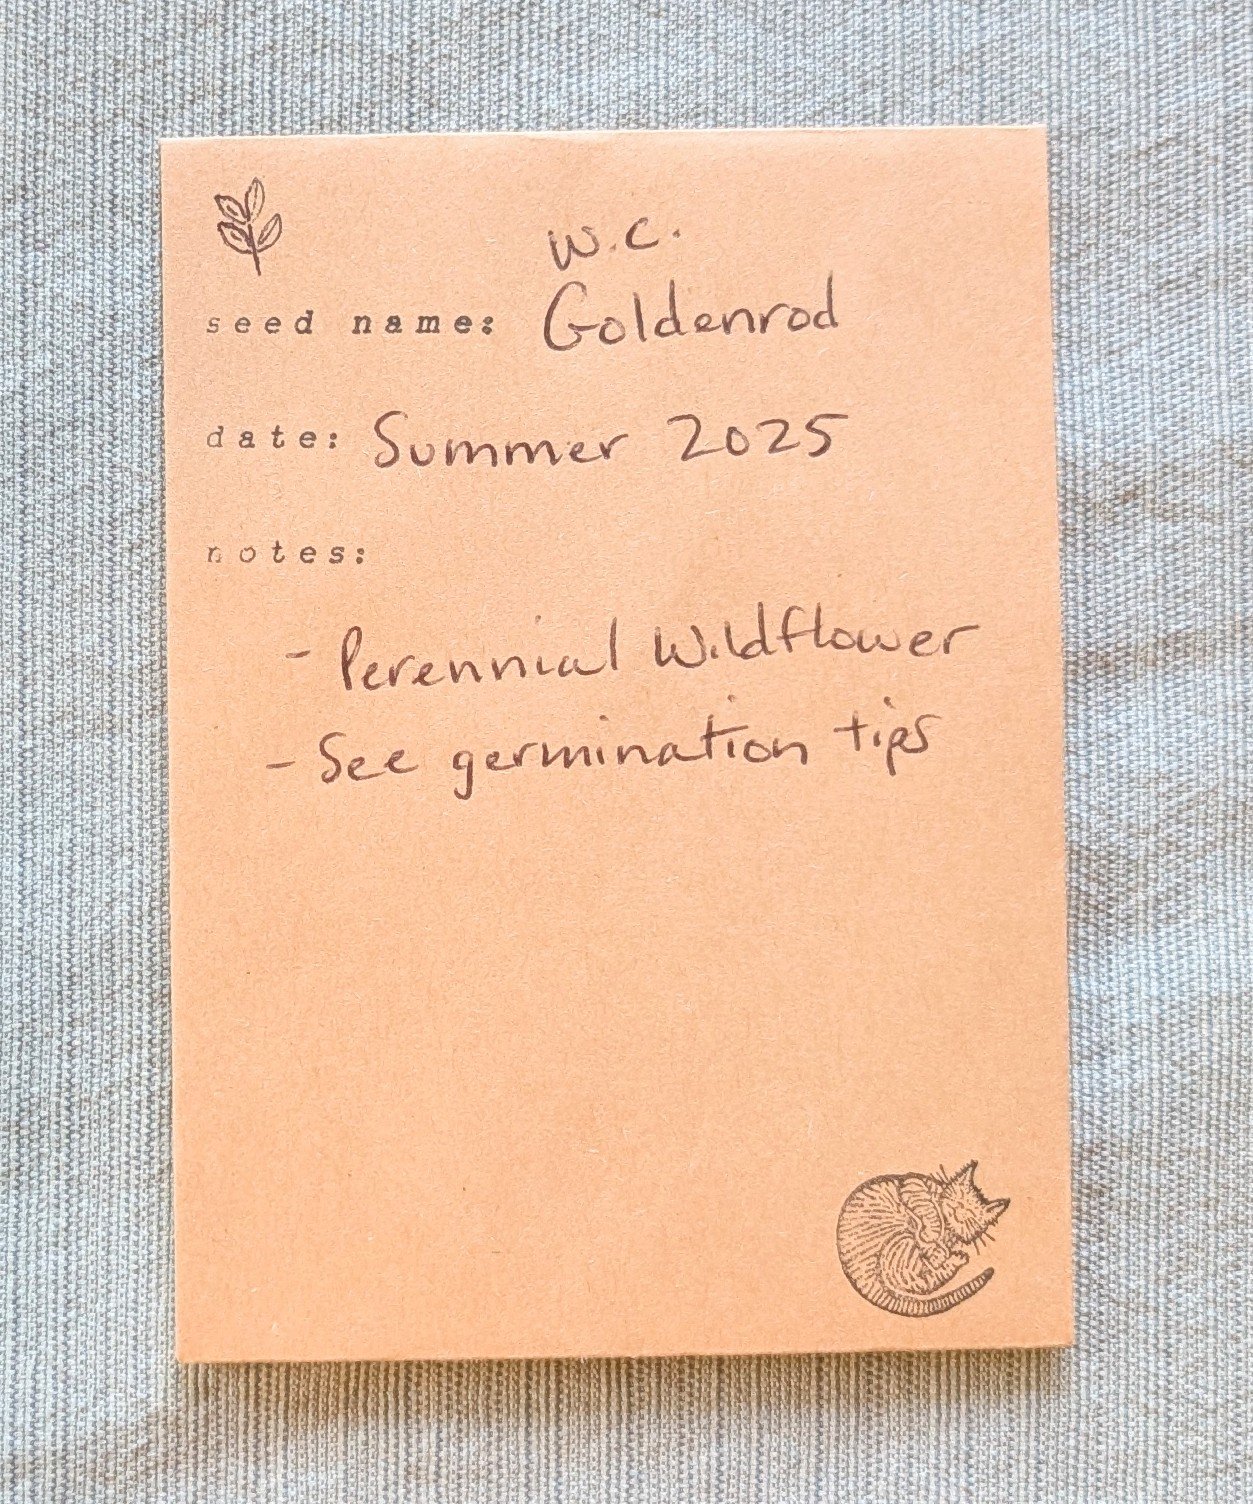 W.C.
seed name: Goldenrod
date: Summer 2025
notes:
- Perennial Wildflower
- See germination tips